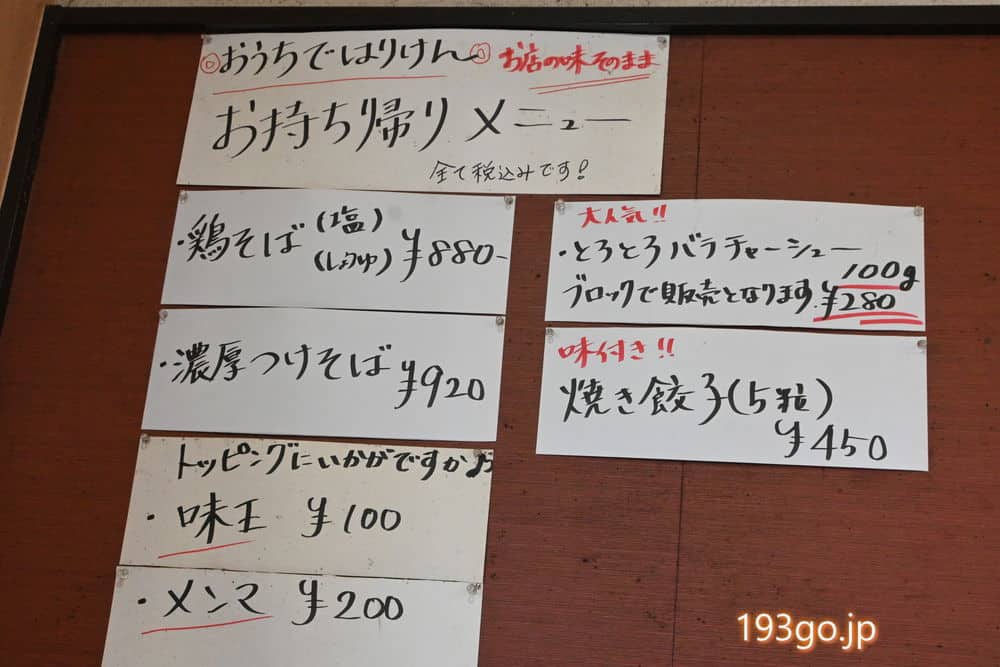 おうちではりけん お店の味そのまま
お持ち帰りメニュー
全て税込みです!
・鶏そば (塩) (しょうゆ) ¥880-
・濃厚つけそば ¥920
トッピングにいかがですか♪
・味玉 ¥100
・メンマ ¥200
大人気!!
・とろとろバラチャーシュー
100g
ブロックで販売となります ¥280
味付き!!
焼き餃子(5粒)
¥450
193go.jp